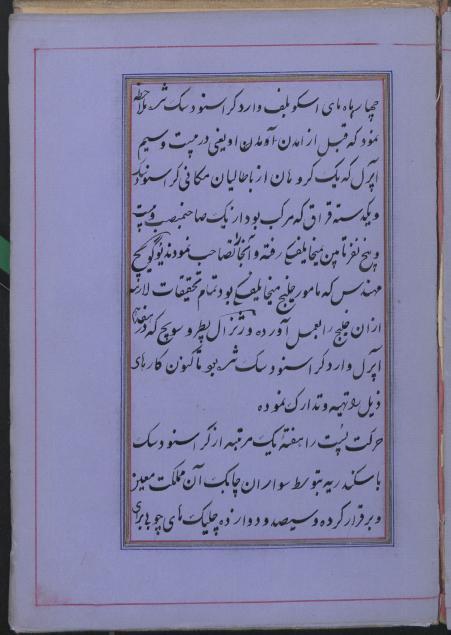 چهارم ماه مای اسکوبلف وارد کراسنودسک شده ملاحظه
نمود که قبل از آمدن او یعنی در بیست و سیم
آپرل که یک کرومان از باطالیان مکانی کراسنودسک
و یکدسته قزاق که مرکب بود از یک صاحب‌منصب و بیست
و پنج نفر تا بین میخایلفسکی رفته و آنجا را تصاحب نمودند
مهندس که مامور خلیج میخایلفسکی بود تمام تحقیقات لازمه
از آن خلیج را بعمل آورده و ژنرال پطروسویچ که در هفدهم
آپرل وارد کراسنودسک شده بود تاکنون کارهای
ذیل را تهیه و تدارک نموده
حرکت پست را هفتهٔ یک مرتبه از کراسنودسک
باسکندریه بتوسط سواران چابک آن مملکت معین
و برقرار کرده و سیصد و دوازده چلیک های چوبی برای